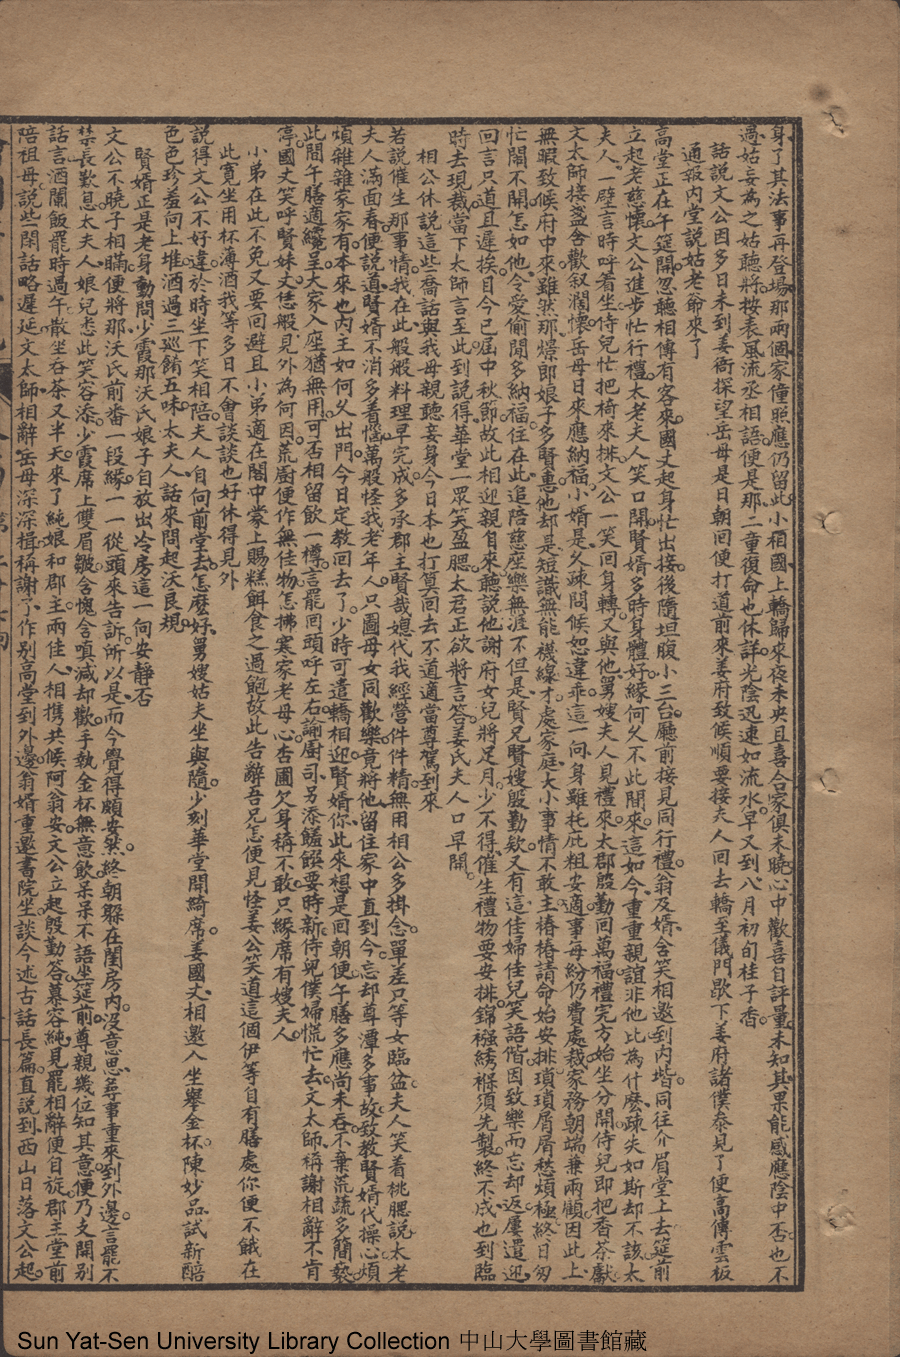 身了其法事再登場那兩個家僮照應仍留此小相國上轎歸來夜未央且喜合家俱未曉心中歡喜自評量未知其果能感應陰中否也不
過姑妄為之姑聽將按表風流丞相語便是那二童復命也休詳光陰迅速如流水早又到八月初旬桂子香
話說文公因多日未到姜衙探望岳母是日朝回便打道前來姜府致候順要接夫人回去轎至儀門歇下姜府諸僕叅見了便高傳雲板
通報內堂説姑老爺來了
高堂正在午筵開忽聽相傳有客來國丈起身忙出接後隨坦腹小三台廳前接見同行禮翁及婿含笑相邀到內堦同往介眉堂上去筵前
立起老慈懷文公進步忙行禮太老夫人笑口開賢婿多時身體好緣何久不此間來這如今重重親誼非他比為什麽疎失如斯却不該太
夫人一壁言時呼着坐侍兒忙把椅來排文公一笑回身轉又與他舅嫂夫人見禮來太郡殷勤回萬福禮完方始坐分開侍兒即把香茶獻
文太師接盞含歡叙濶懷岳母日來應納福小婿是久疎問候恕違乖這一向身雖托庇粗安適事每紛仍費處裁家務朝端兼兩顧因此上
無暇致候府中來雖然那憬郎娘子多賢惠他却是短識無能襪緣才處家庭大小事情不敢主樁樁請命始安排瑣瑣屑屑愁煩極終日匆
忙閙不開怎如他令愛偷閒多納福住在此追陪慈座樂無涯不但是賢兄賢嫂殷勤欵又有這佳婦佳兒笑語偕因致樂而忘却返屢遣迎
回言只道且遲挨目今已屆中秋節故此相迎親自來聽説他謝府女兒將足月少不得催生禮物要安排錦襁綉褓須先製終不成也到臨
時去現裁當下太師言至此到説得華堂一眾笑盈腮太君正欲將言答姜氏夫人口早開
相公休説這些喬話與我母親聽妾身今日本也打算回去不道適當尊駕到來
若說催生那事情我在此般般料理早完成多承郡主賢哉媳代我經營件件精無用相公多掛念單差只等女臨盆夫人笑着桃腮説太老
夫人滿面春便説道賢婿不消多着惱萬般怪我老年人只圖母女同歡樂竟將他留住家中直到今忘却尊潭多事故致教賢婿代操心煩
煩雜雜家家有本來也內主如何久出門今日定教回去了少時可遣轎相迎賢婿你此來想是回朝便午膳多應尚未吞不棄荒蔬多簡褻
此間午膳適纔呈大家入座猶無用可否相留飲一樽言罷回頭呼左右諭廚司另添饈饌要時新侍兒僕婦慌忙去文太師稱謝相辭不肯
停國丈笑呼賢妹丈恁般見外為何因荒廚便作無佳物怎拂寒家老母心杏圃欠身稱不敢只緣席有嫂夫人
小弟在此不免又要回避且小弟適在閣中蒙上賜糕餌食之過飽故此告辭吾兄怎便見怪姜公笑道這個伊等自有膳處你便不餓在
此寬坐用杯薄酒我等多日不會談談也好休得見外
説得文公不好違於時坐下笑相陪夫人自向前堂去怎麽好舅嫂姑夫坐與隨少刻華堂開綺席姜國丈相邀入坐舉金杯陳妙品試新醅
色色珍羞向上堆酒過三巡餚五味太夫人話來問起沃良規
賢婿正是老身動問少霞那沃氏娘子自放出冷房這一向安靜否
文公不曉子相瞞便將那沃氏前番一段緣一一從頭來告訴所以是而今覺得頗安然終朝躱在閨房內沒意思尋事重來到外邊言罷不
禁長歎息太夫人娘兒悉此笑容添少霞席上雙眉皺含愧含嗔減却歡手執金杯無意飲呆呆不語坐筵前尊親幾位知其意便乃支開別
話言酒闌飯罷時過午散坐吞茶又半天來了純娘和郡主兩佳人相攜共候阿翁安文公立起殷勤答慕容純見罷相辭便自旋郡主堂前
陪祖母説些閒話略遲延文太師相辭岳母深深揖稱謝了作别高堂到外邊翁婿重邀書院坐談今述古話長篇直説到西山日落文公起
Sun Yat-Sen University Library Collection 中山大學圖書館藏